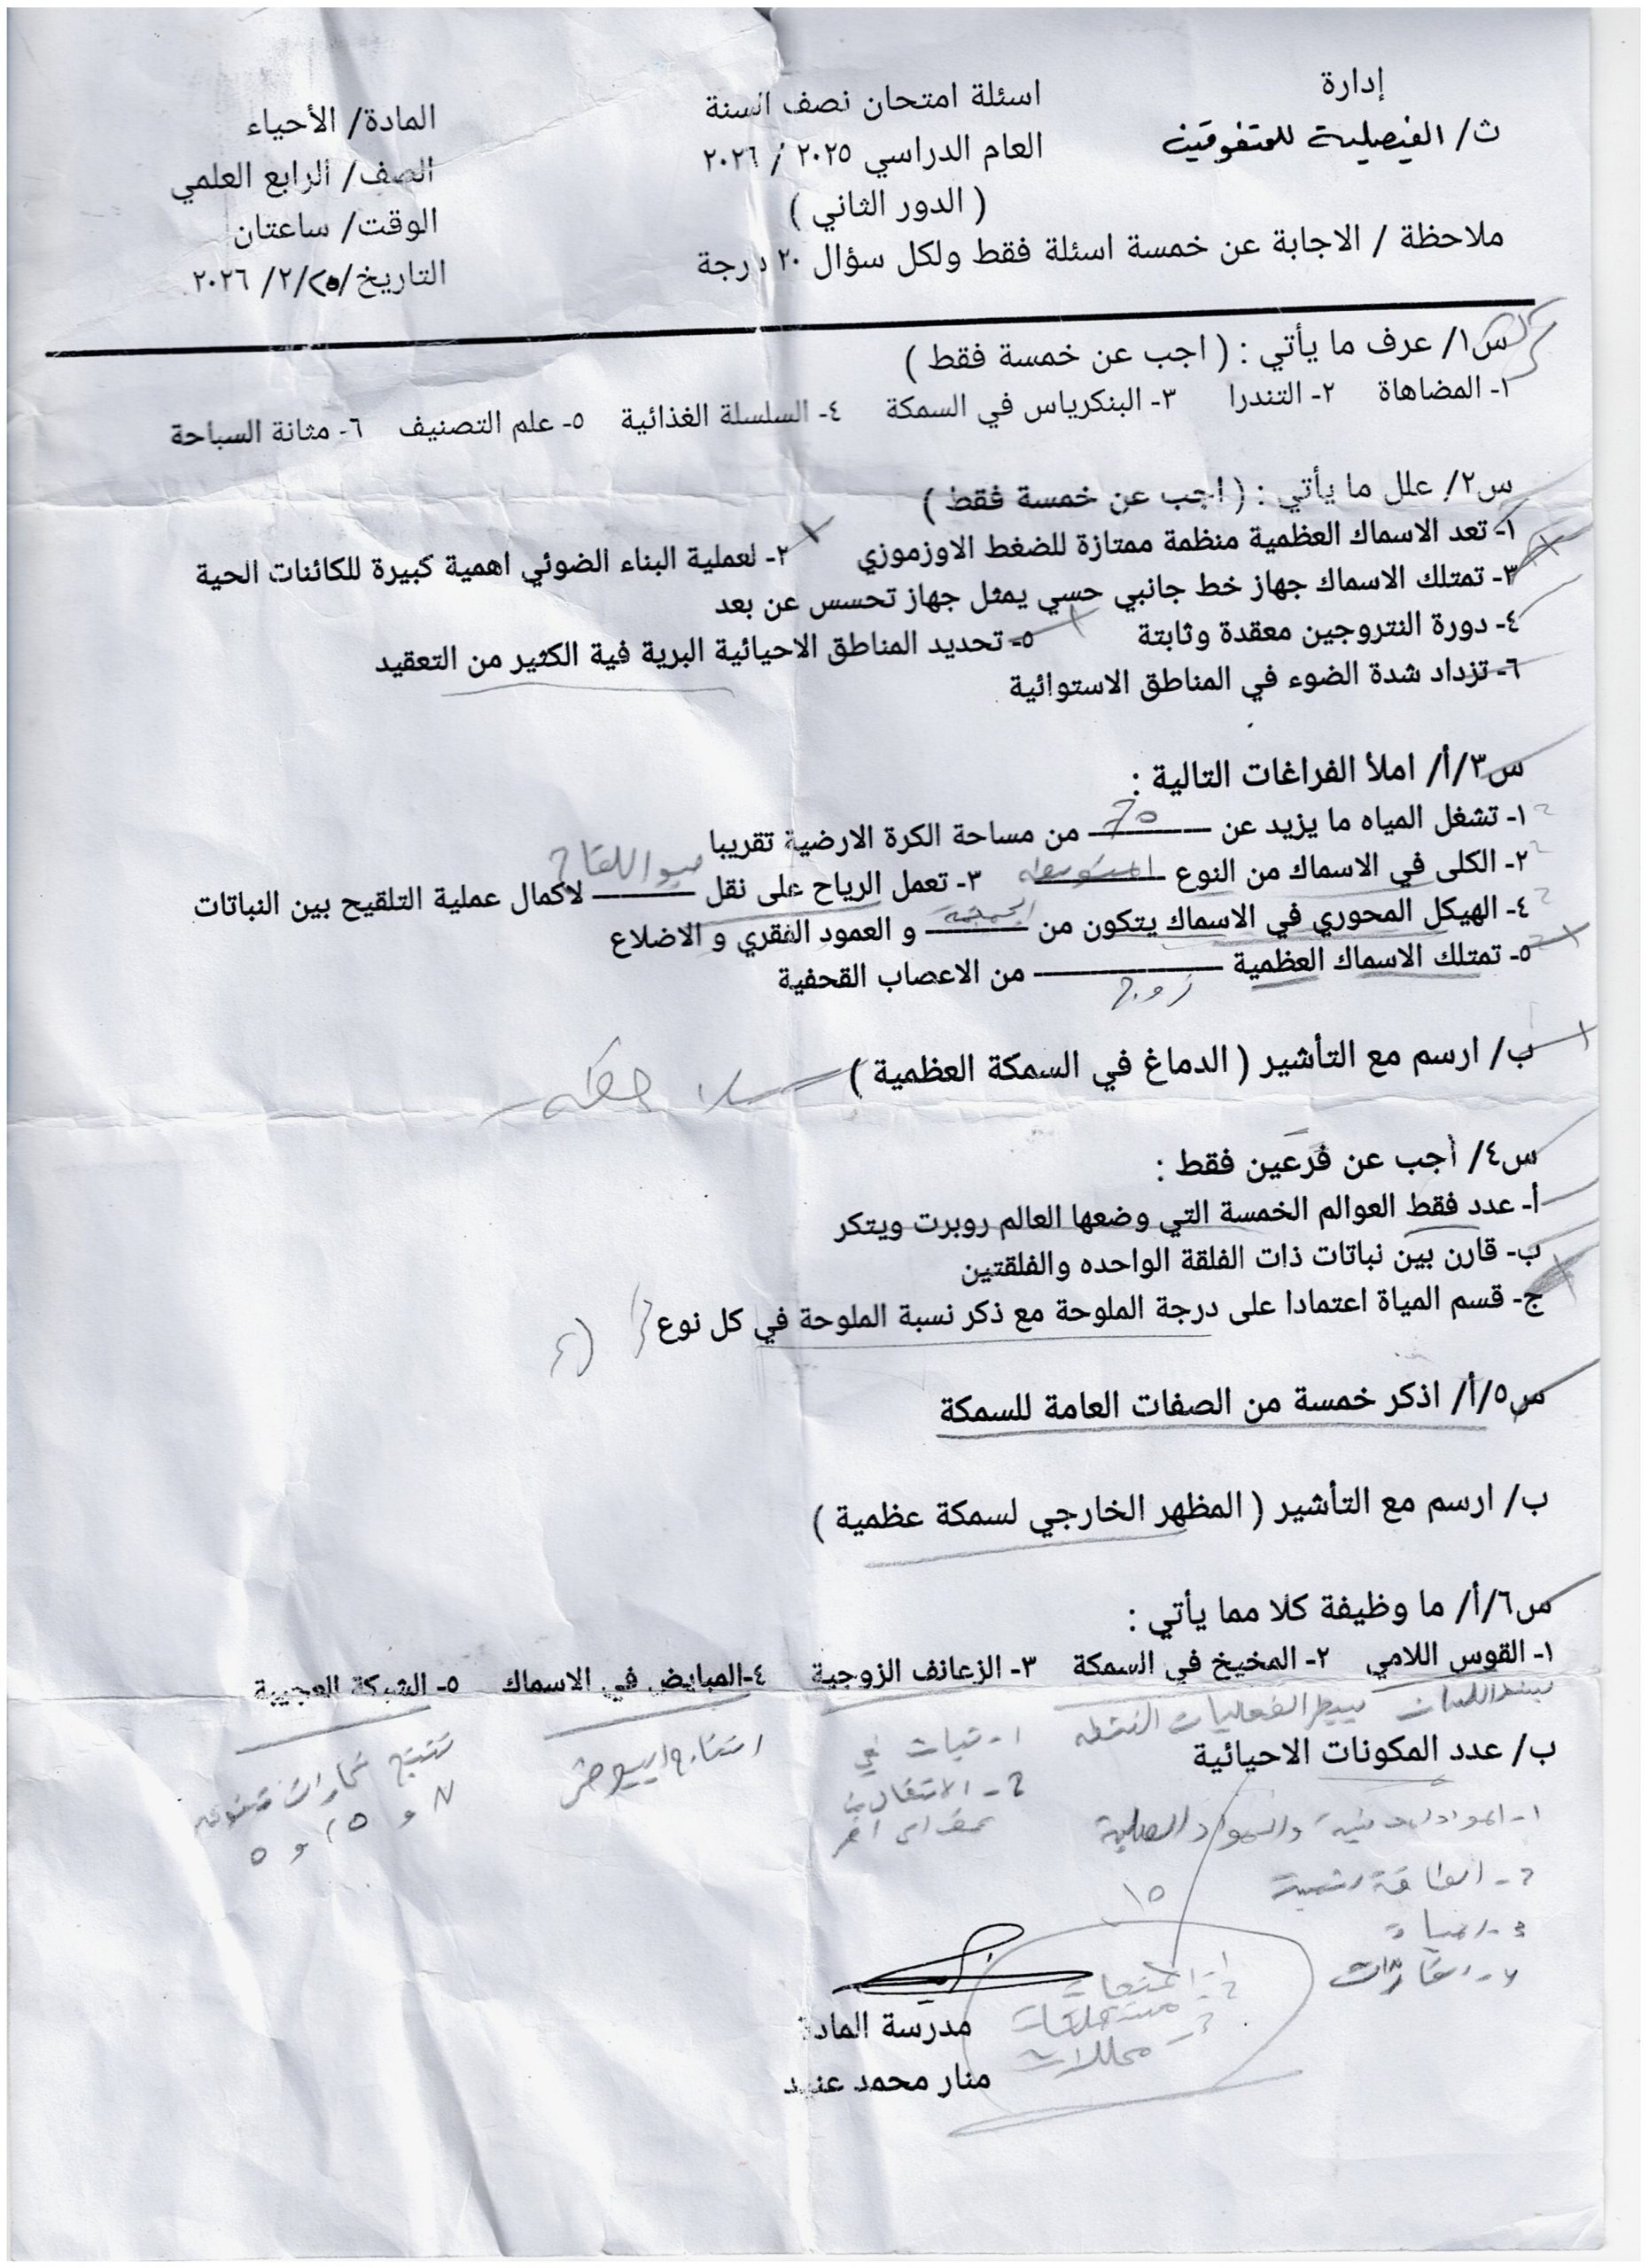 إدارة
ث/ الفيصلية للمتفوقين
اسئلة امتحان نصف السنة
العام الدراسي ٢٠٢٥ / ٢٠٢٦
( الدور الثاني )
المادة/ الأحياء
الصف/ الرابع العلمي
الوقت/ ساعتان
التاريخ/٢/٢٥/ ٢٠٢٦
ملاحظة / الاجابة عن خمسة اسئلة فقط ولكل سؤال ٢٠ درجة
س١/ عرف ما يأتي : ( اجب عن خمسة فقط )
١- المضاهاة ٢- التندرا ٣- البنكرياس في السمكة ٤- السلسلة الغذائية ٥- علم التصنيف ٦- مثانة السباحة
س٢/ علل ما يأتي : ( اجب عن خمسة فقط )
١- تعد الاسماك العظمية منظمة ممتازة للضغط الاوزموزي ٢- لعملية البناء الضوئي اهمية كبيرة للكائنات الحية
٣- تمتلك الاسماك جهاز خط جانبي حسي يمثل جهاز تحسس عن بعد
٤- دورة النتروجين معقدة وثابتة ٥- تحديد المناطق الاحيائية البرية فية الكثير من التعقيد
٦- تزداد شدة الضوء في المناطق الاستوائية
س٣/أ/ املأ الفراغات التالية :
١- تشغل المياه ما يزيد عن 70 من مساحة الكرة الارضية تقريبا
٢- الكلى في الاسماك من النوع المتوسطه ٣- تعمل الرياح على نقل حبو اللقاح لاكمال عملية التلقيح بين النباتات
٤- الهيكل المحوري في الاسماك يتكون من الجمجمه و العمود الفقري و الاضلاع
٥- تمتلك الاسماك العظمية من الاعصاب القحفية
زوج
ب/ ارسم مع التأشير ( الدماغ في السمكة العظمية )
س٤/ أجب عن فرعين فقط :
أ- عدد فقط العوالم الخمسة التي وضعها العالم روبرت ويتكر
ب- قارن بين نباتات ذات الفلقة الواحده والفلقتين
ج- قسم المياة اعتمادا على درجة الملوحة مع ذكر نسبة الملوحة في كل نوع
س٥/أ/ اذكر خمسة من الصفات العامة للسمكة
ب/ ارسم مع التأشير ( المظهر الخارجي لسمكة عظمية )
س٦/أ/ ما وظيفة كلا مما يأتي :
١- القوس اللامي ٢- المخيخ في السمكة ٣- الزعانف الزوجية ٤-المبايض في الاسماك ٥- الشبكة العجيبة
يسند اللسان يسيطر الفعاليات النشطه
ب/ عدد المكونات الاحيائية
٣- المياة
١٥
١- المنتجات
٢- مستهلكات
٣- محللات
مدرسة المادة
منار محمد عنيد